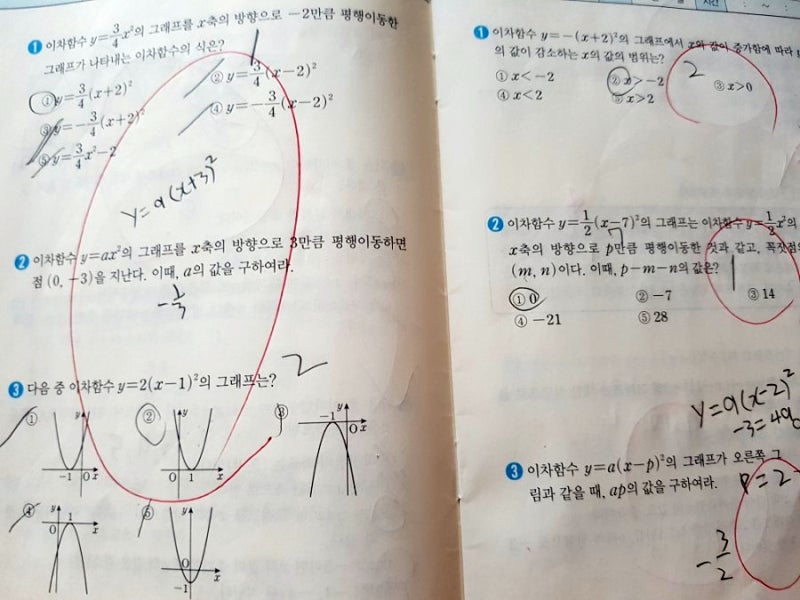 시간
: ~ :
1 이차함수 y=3/4x²의 그래프를 x축의 방향으로 -2만큼 평행이동한
그래프가 나타내는 이차함수의 식은?
① y=3/4(x+2)² ② y=3/4(x-2)²
③ y=-3/4(x+2)² ④ y=-3/4(x-2)²
⑤ y=3/4x²-2
1
y=a(x+3)²
2 이차함수 y=ax²의 그래프를 x축의 방향으로 3만큼 평행이동하면
점 (0, -3)을 지난다. 이때, a의 값을 구하여라.
-1/3
3 다음 중 이차함수 y=2(x-1)²의 그래프는?
2
① y -1 0 x
② y 0 1 x
③ y -1 0 x
④ y 0 1 x
⑤ y 0 -1 x
1 이차함수 y=-(x+2)²의 그래프에서 x의 값이 증가함에 따라
의 값이 감소하는 x의 값의 범위는?
① x<-2 ② x>-2 ③ x>0
④ x<2 ⑤ x>2
2
2 이차함수 y=1/2(x-7)²의 그래프는 이차함수 y=1/2x²의
x축의 방향으로 p만큼 평행이동한 것과 같고, 꼭짓점
(m, n)이다. 이때, p-m-n의 값은?
7
1
① 0 ② -7 ③ 14
④ -21 ⑤ 28
y=a(x-2)²
-3=4a
3 이차함수 y=a(x-p)²의 그래프가 오른쪽 그
림과 같을 때, ap의 값을 구하여라.
p=2
-3/2